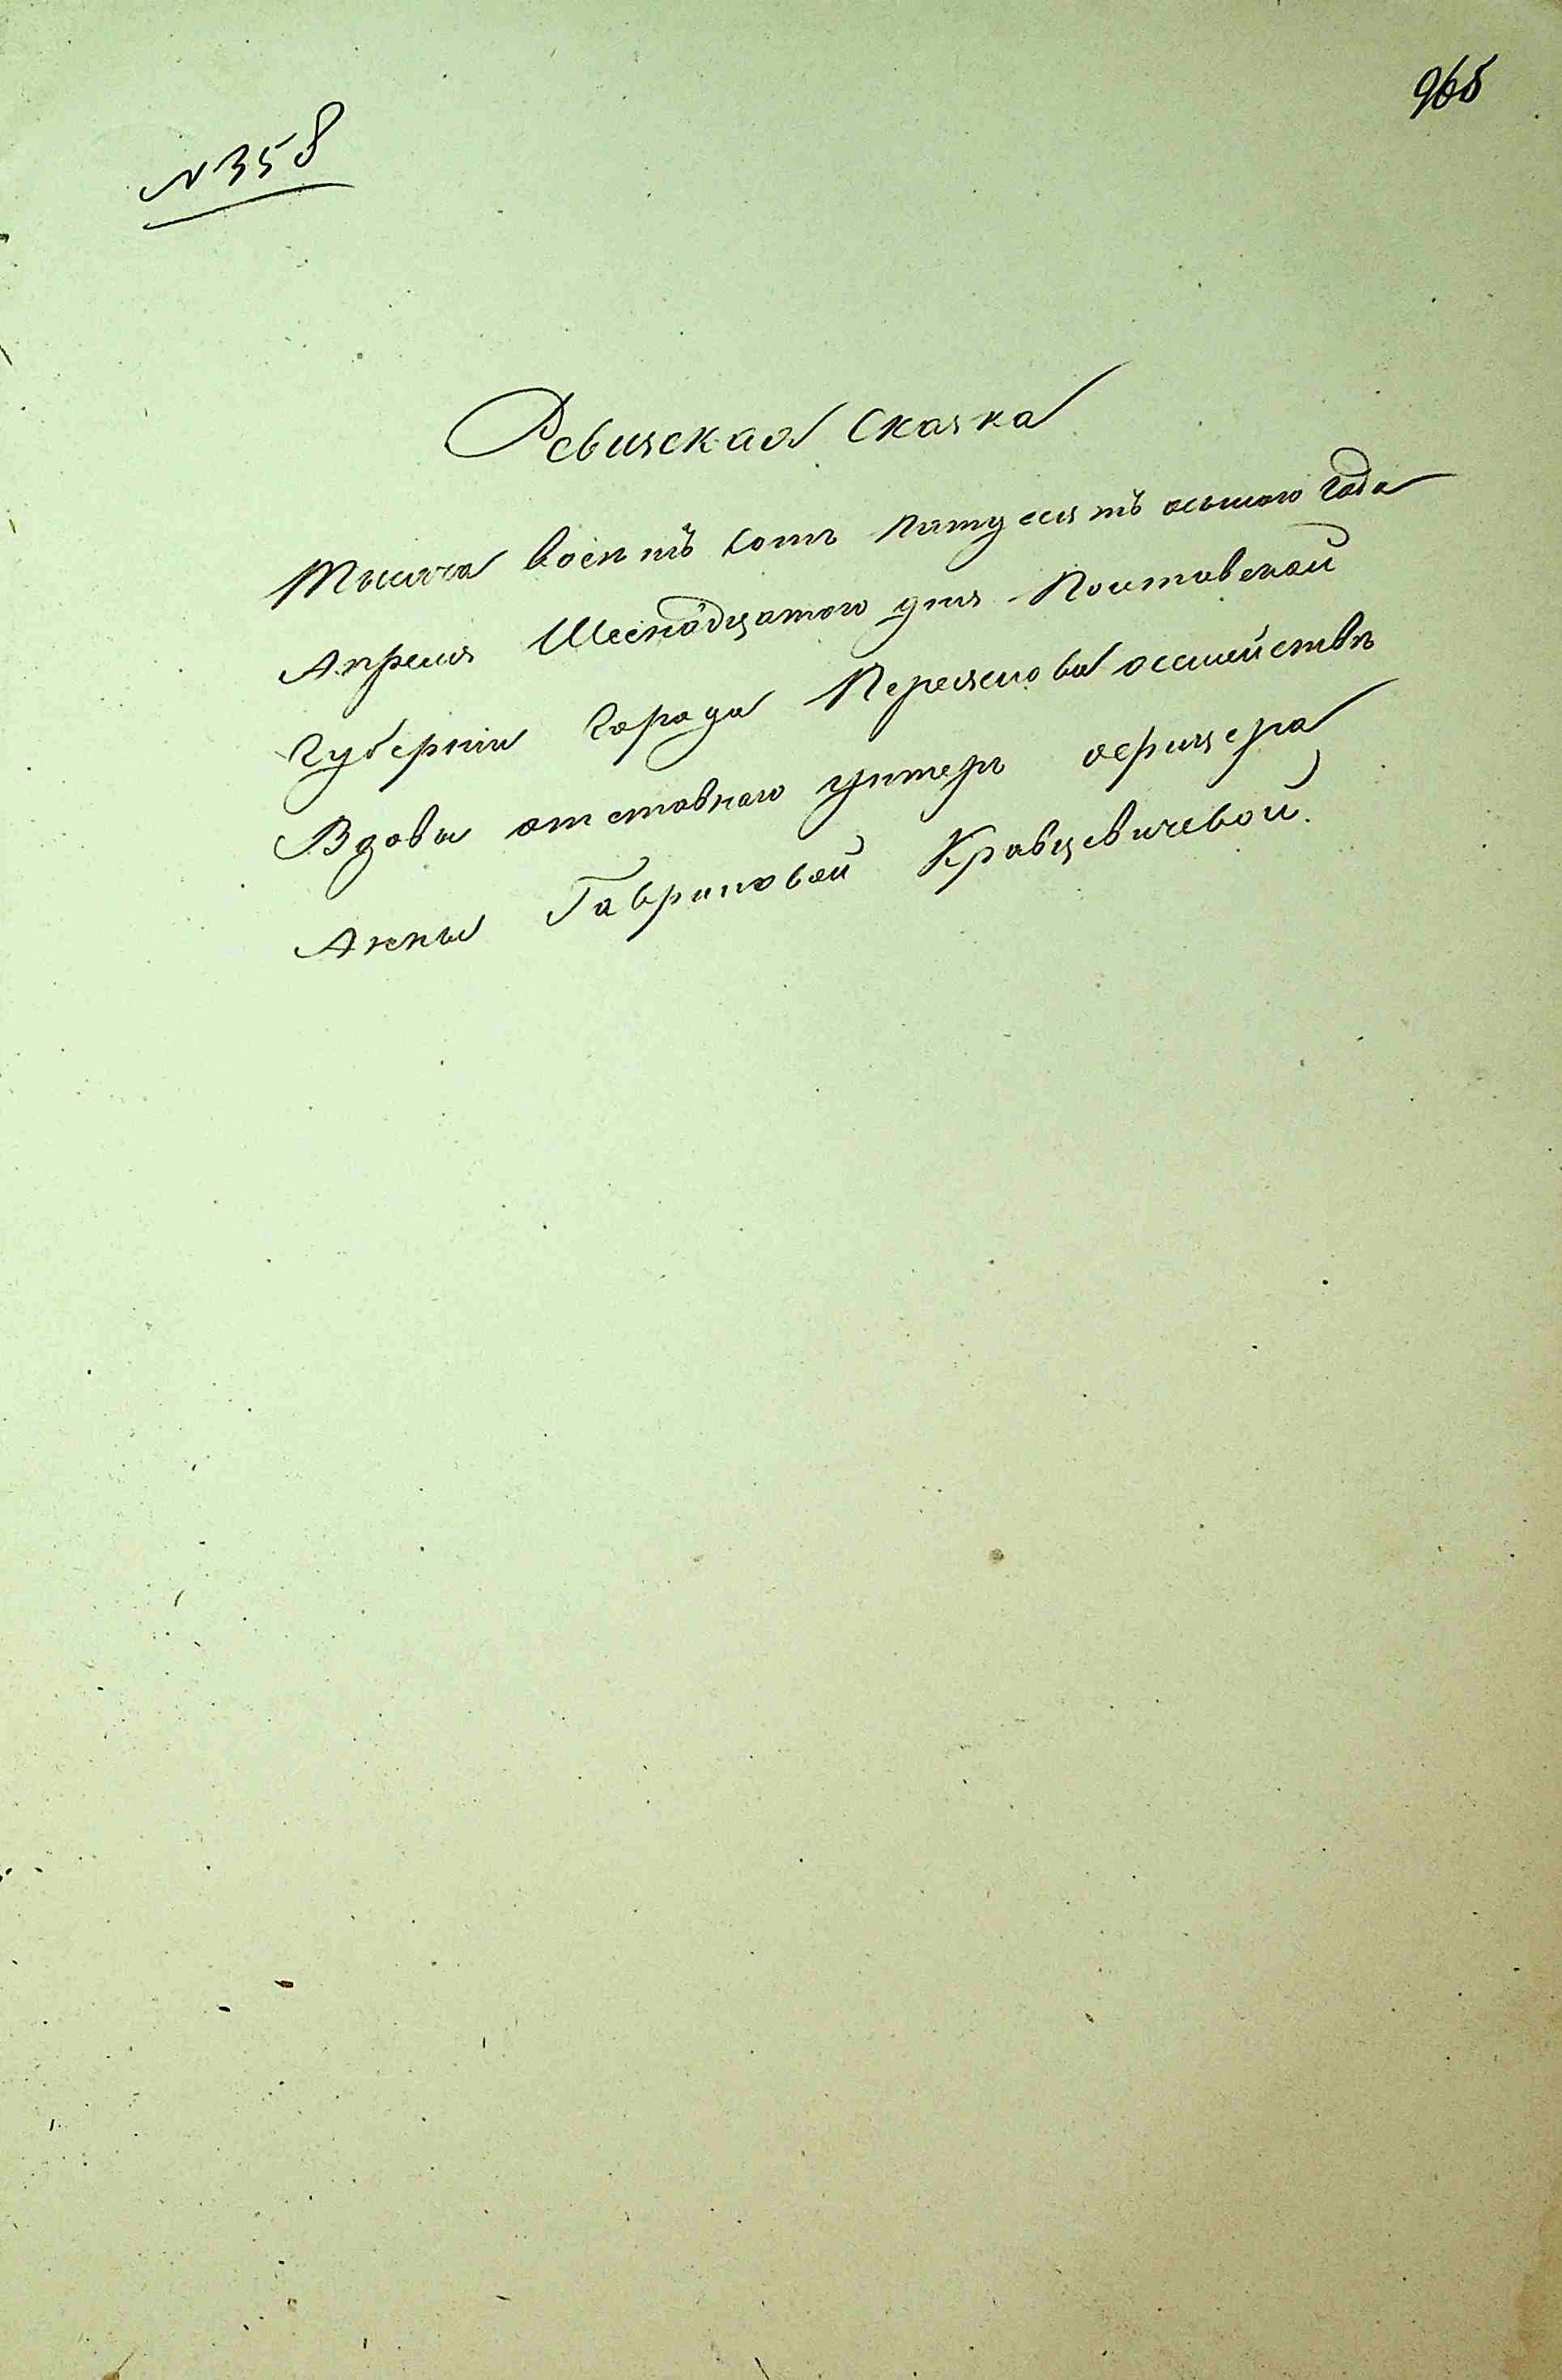 965
№ 358
Ревизская сказка
Тысяча восемь сотъ пятдесятъ осьмого года
Апреля Шеснадцатого дня Полтавской
Губернии Города Переяслова осемействѣ
Вдовы отставного унтеръ офицера
Анны Гавриловой Кравцевичевой.